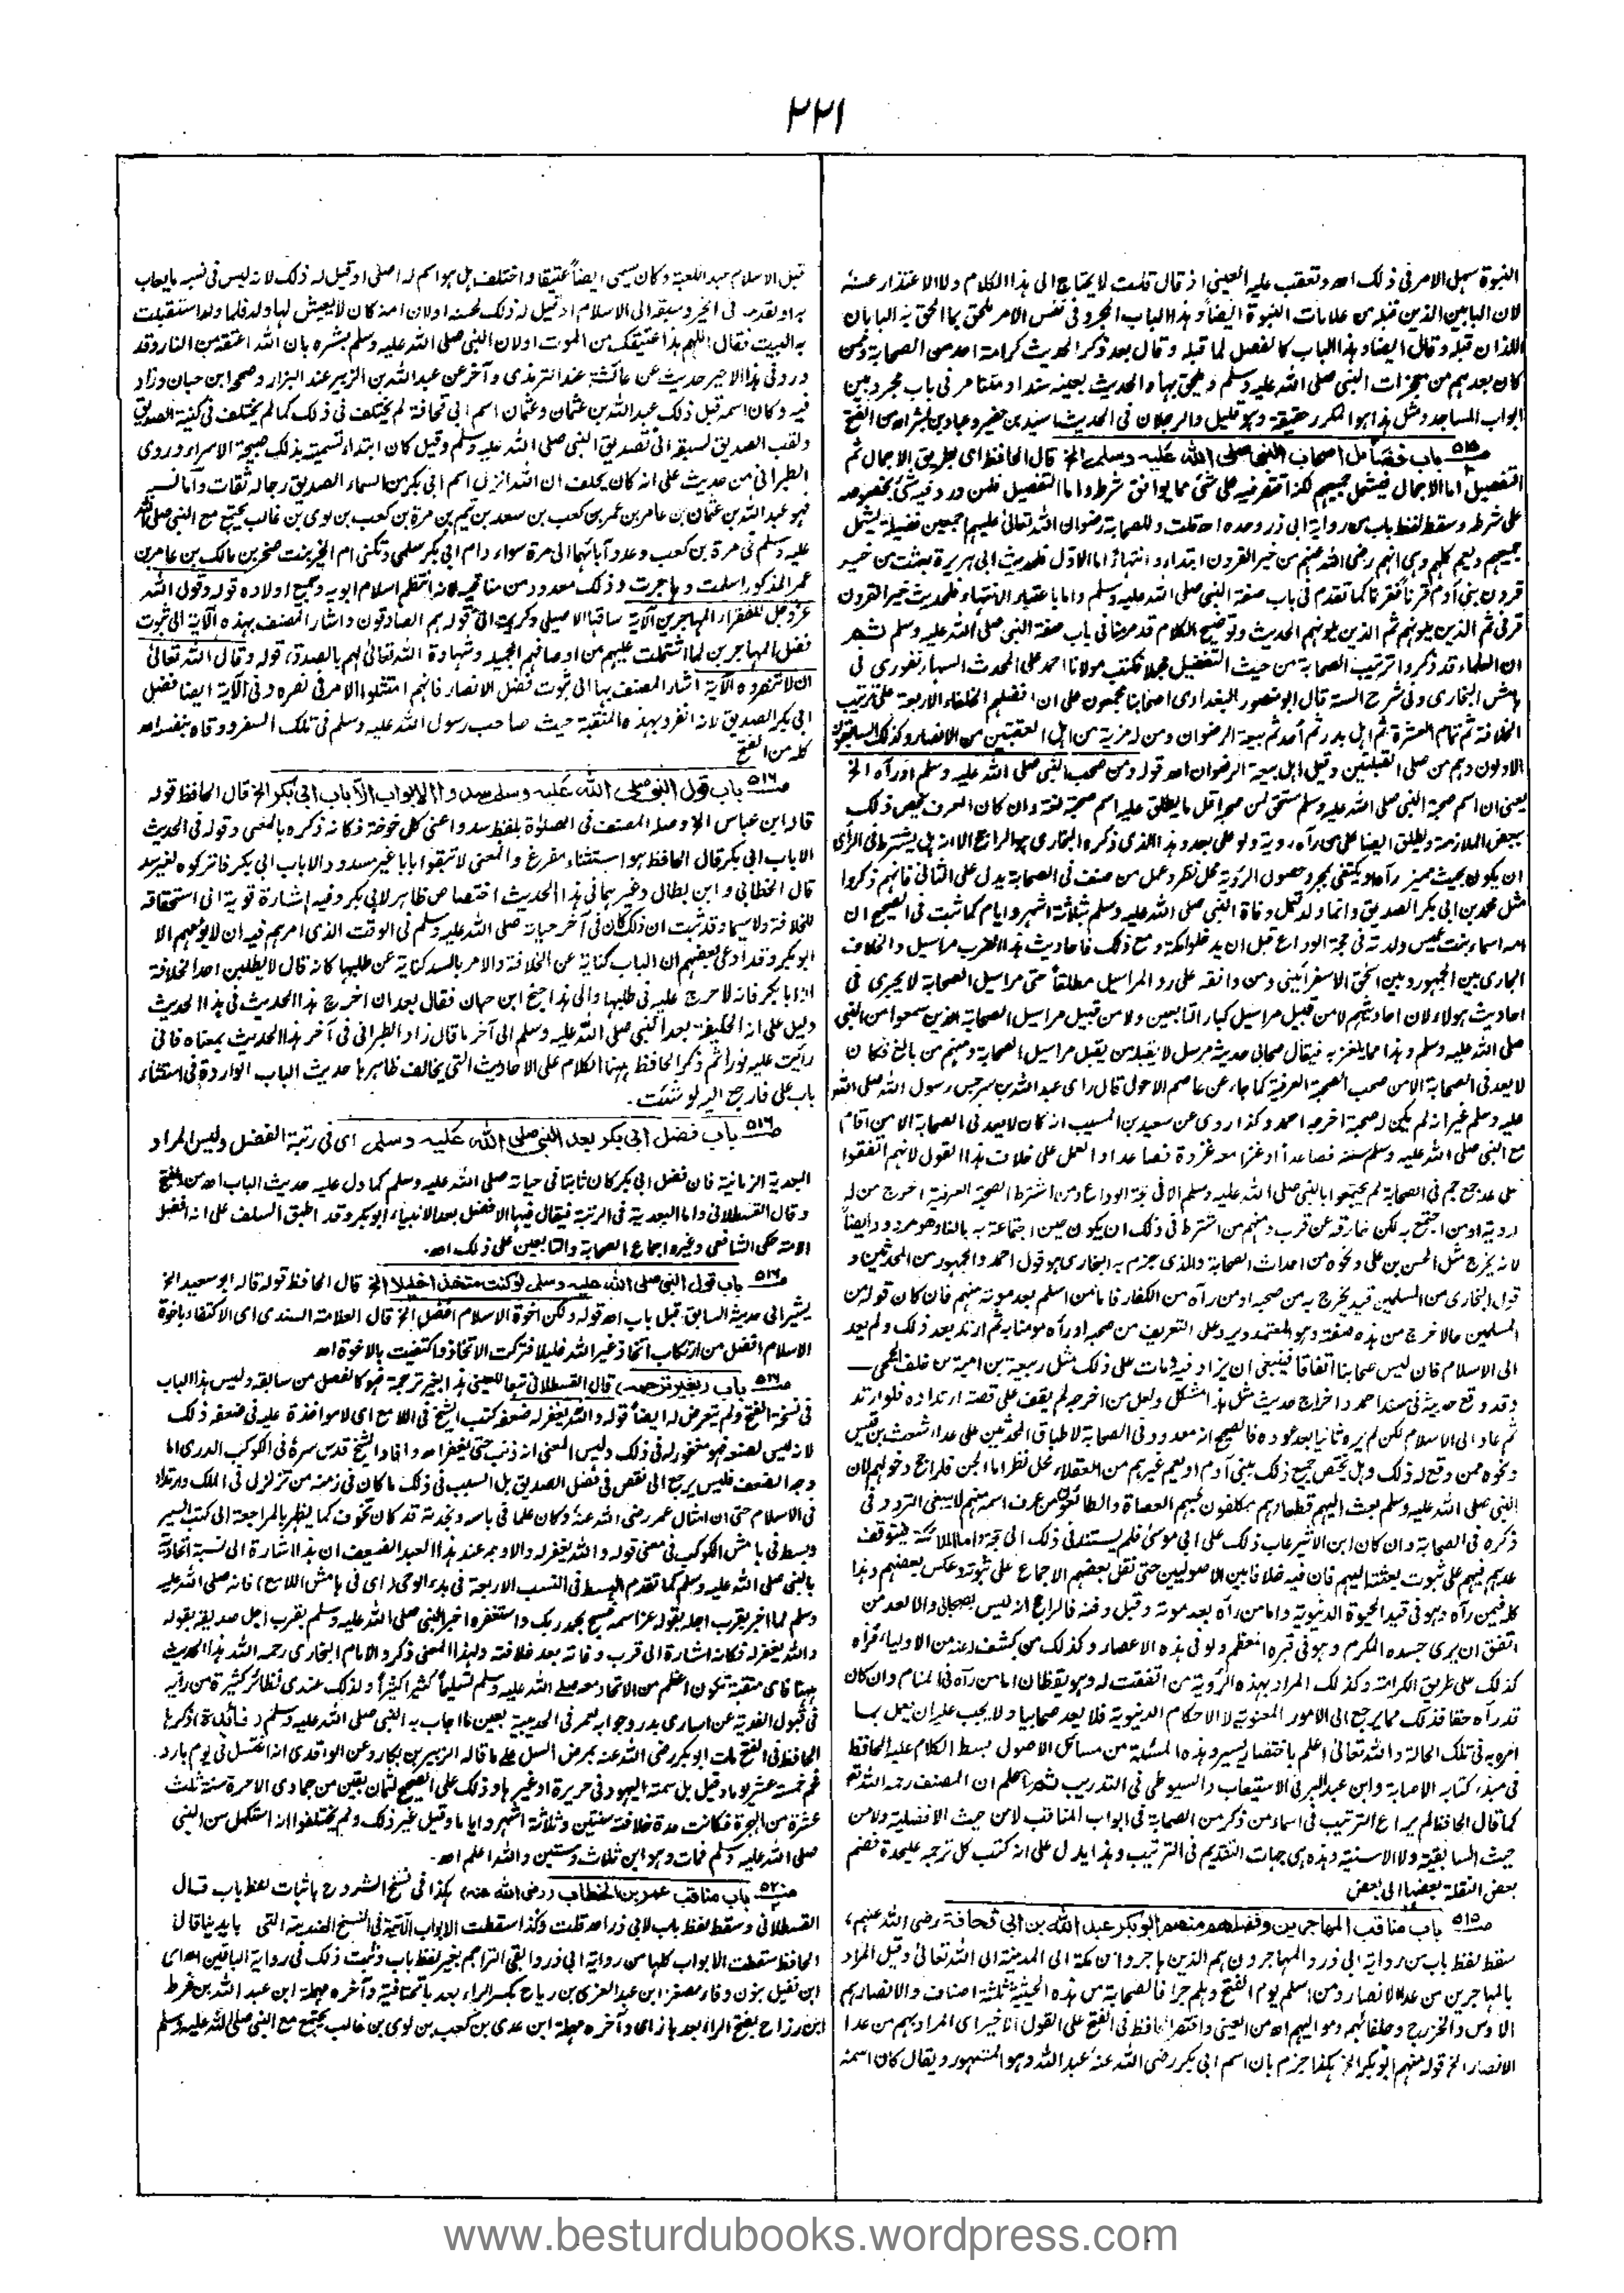 ٢٢١
النبوة سهل الامر فى ذلك اھ وتعقب عليه العينى اذ قال قلت لا يحتاج الى هذا الكلام ولا الاعتذار عنه
لان البابين الذين قبله من علامات النبوة ايضاً وهذا الباب المجرد فى نفس الامر ملحق بما الحق به البابان
اللذان قبله وقال ايضا وهذا الباب كالفصل لما قبله وقال بعد ذكر الحديث كرامة احد من الصحابة ومن
كان بعدهم من معجزات النبى صلى الله عليه وسلم ويلحق بها والحديث بعينه سندا ومتنا مر فى باب مجرد بين
ابواب المساجد ومثل هذا هو المكرر حقيقة وهو قليل والرجلان فى الحديث اسيد بن حضير وعباد بن بشر اھ من الفتح
ص٥١٥ باب فضائل اصحاب النبى صلى الله عليه وسلم الخ قال الحافظ اى بطريق الاجمال ثم
التفصيل اما الاجمال فيشمل جميعهم لكنه اقتصر فيه على شئ مما يوافق شرطه واما التفصيل فلمن ورد فيه شئ بخصوصه
على شرطه وسقط لفظ باب من رواية ابى ذر وحده اھ قلت وللصحابة رضوان الله تعالى عليهم اجمعين فضيلة يشمل
جميعهم ويعم كلهم وهى انهم رضى الله عنهم من خير القرون ابتداء وانتهاءً اما الاول فلحديث ابى هريرة بعثت من خير
قرون بنى آدم قرناً فقرنا كما تقدم فى باب صفة النبى صلى الله عليه وسلم واما باعتبار الانتهاء فلحديث خير القرون
قرنى ثم الذين يلونهم ثم الذين يلونهم الحديث وتوضيح الكلام قد مر هنا فى باب صفة النبى صلى الله عليه وسلم ثم
ان العلماء قد ذكروا ترتيب الصحابة من حيث التفضيل مجملا فكتب مولانا احمد على المحدث السهارنفورى فى
هامش البخارى وفى شرح السنة قال ابو منصور البغدادى اصحابنا مجمعون على ان افضلهم الخلفاء الاربعة على ترتيب
الخلافة ثم تمام العشرة ثم اهل بدر ثم أحد ثم بيعة الرضوان ومن له مزية من اهل العقبتين من الانصار وكذلك السابقون
الاولون وهم من صلى القبلتين وقيل اهل بيعة الرضوان اھ قوله ومن صحب النبى صلى الله عليه وسلم اورآه الخ
يعنى ان اسم صحبة النبى صلى الله عليه وسلم مستحق لمن صحبه اقل ما يطلق عليه اسم صحبة لغة وان كان العرف يخص ذلك
ببعض الملازمة ويطلق ايضا على من رآه رؤية ولو على بعد وهذا الذى ذكره البخارى هو الراجح الا انه هل يشترط فى الرائى
ان يكون بحيث يميز ما رآه او يكتفى بمجرد حصول الرؤية محل نظر وعمل من صنف فى الصحابة يدل على الثانى فانهم ذكروا
مثل محمد بن ابى بكر الصديق وانما ولد قبل وفاة النبى صلى الله عليه وسلم بثلاثة اشهر وايام كما ثبت فى الصحيح ان
امه اسماء بنت عميس ولدته فى حجة الوداع قبل ان يدخلوا مكة ومع ذلك فاحاديث هذا الضرب مراسيل والخلاف
الجارى بين الجمهور وبين ابى اسحق الاسفرائينى ومن وافقه على رد المراسيل مطلقاً حتى مراسيل الصحابة لا يجرى فى
احاديث هؤلاء لان احاديثهم لا من قبيل مراسيل كبار التابعين ولا من قبيل مراسيل الصحابة الذين سمعوا من النبى
صلى الله عليه وسلم وهذا مما يلغز به فيقال صحابى حديثه مرسل لا يقبله من يقبل مراسيل الصحابة ومنهم من بالغ فكان
لا يعد فى الصحابة الا من صحب الصحبة العرفية كما جاء عن عاصم الاحول قال راى عبد الله بن سرجس رسول الله صلى الله
عليه وسلم غير انه لم يكن له صحبة اخرجه احمد وكذا روى عن سعيد بن المسيب انه كان لا يعد فى الصحابة الا من اقام
مع النبى صلى الله عليه وسلم سنة فصاعداً او غزا معه غزوة فصاعدا والعمل على خلاف هذا القول لانهم اتفقوا
على عد جمع جم فى الصحابة لم يجتمعوا بالنبى صلى الله عليه وسلم الا فى حجة الوداع ومن اشترط الصحبة العرفية اخرج من له
رؤية او من اجتمع به لكن فارقه عن قرب ومنهم من اشترط فى ذلك ان يكون حين اجتماعه به بالغا وهو مردود ايضاً
لانه يخرج مثل الحسن بن على ونحوه من احداث الصحابة والذى جزم به البخارى هو قول احمد والجمهور من المحدثين و
قول البخارى من المسلمين قيد يخرج به من صحبه او من رآه من الكفار فاما من اسلم بعد موته منهم فان كان قوله من
المسلمين حالا خرج من هذه صفته وهو المعتمد ويرد على التعريف من صحبه او رآه مومنا به ثم ارتد بعد ذلك ولم يعد
الى الاسلام فانه ليس صحابيا اتفاقا فينبغى ان يزاد فيه ومات على ذلك مثل ربيعة بن امية بن خلف الجمحى
وقد وقع حديثه فى مسند احمد واخراج حديث مثل هذا مشكل ولعل من اخرجه لم يقف على قصة ارتداده فلو ارتد
ثم عاد الى الاسلام لكن لم يره ثانيا بعد عوده فالصحيح انه معدود فى الصحابة لاطباق المحدثين على عد اشعث بن قيس
ونحوه ممن وقع له ذلك وهل يختص جميع ذلك ببنى آدم او يعم غيرهم من العقلاء محل نظر اما الجن فالراجح دخولهم لان
النبى صلى الله عليه وسلم بعث اليهم قطعا وهم مكلفون فيهم العصاة والطائعون من عرف اسمه منهم لا ينبغى التردد فى
ذكره فى الصحابة وان كان ابن الاثير عاب ذلك على ابى موسى فلم يستند فى ذلك الى حجة واما الملائكة فيتوقف
عدهم فيهم على ثبوت بعثته اليهم فان فيه خلافا بين الاصوليين حتى نقل بعضهم الاجماع على ثبوته وعكس بعضهم وهذا
كله فيمن رآه وهو فى قيد الحيوة الدنيوية واما من رآه بعد موته وقبل دفنه فالراجح انه ليس بصحابى والا لعد من
اتفق ان يرى جسده المكرم وهو فى قبره المعظم ولو فى هذه الاعصار وكذلك من كشف له عنه من الاولياء فرآه
كذلك على طريق الكرامة وكذلك المراد بهذه الرؤية من اتفقت له وهو يقظان اما من رآه فى المنام وان كان
قد رآه حقا فذلك مما يرجع الى الامور المعنوية لا الاحكام الدنيوية فلا يعد صحابيا ولا يجب عليه ان يعمل بما
امره به فى تلك الحالة والله تعالى اعلم باختصار يسير وهذه المسئلة من مسائل الاصول بسط الكلام عليه الحافظ
فى مبدء كتابه الاصابة وابن عبد البر فى الاستيعاب والسيوطى فى التدريب ثم اعلم ان المصنف رحمه الله تعالى
كما قال الحافظ لم يراع الترتيب فى اسماء من ذكر من الصحابة فى ابواب المناقب لا من حيث الافضلية ولا من
حيث السابقية ولا الاسنية وهذه هى جهات التقديم فى الترتيب وهذا يدل على انه كتب كل ترجمة عليحدة فضم
بعض النقلة بعضها الى بعض
ص٥١٥ باب مناقب المهاجرين وفضلهم منهم ابو بكر عبد الله بن ابى قحافة رضى الله عنهم،
سقط لفظ باب من رواية ابى ذر والمهاجرون هم الذين هاجروا من مكة الى المدينة الى الله تعالى وقيل المراد
بالمهاجرين من عدا الانصار ومن اسلم يوم الفتح وهلم جرا فالصحابة من هذه الحيثية ثلاثة اصناف والانصار هم
الاوس والخزرج وحلفائهم ومواليهم اھ من العينى واقتصر الحافظ فى الفتح على القول الاخير اى المراد بهم من عدا
الانصار الخ قوله منهم ابو بكر الخ هكذا جزم بان اسم ابى بكر رضى الله عنه عبد الله وهو المشهور ويقال كان اسمه
قبل الاسلام عبد الكعبة وكان يسمى ايضاً عتيقا واختلف هل هو اسم له اصلى او قيل له ذلك لانه ليس فى نسبه ما يعاب
به او لقدمه فى الخير وسبقه الى الاسلام او قيل له ذلك لحسنه اولان امه كان لا يعيش لها ولد فلما ولد استقبلت
به البيت فقال اللهم هذا عتيقك من الموت اولان النبى صلى الله عليه وسلم بشره بان الله اعتقه من النار وقد
ورد فى هذا الاخير حديث عن عائشة عند الترمذى وآخر عن عبد الله بن الزبير عند البزار وصححه ابن حبان وزاد
فيه وكان اسمه قبل ذلك عبد الله بن عثمان وعثمان اسم ابى قحافة لم يختلف فى ذلك كما لم يختلف فى كنية الصديق
ولقب الصديق لسبقه الى تصديق النبى صلى الله عليه وسلم وقيل كان ابتداء تسميته بذلك صبيحة الاسراء وروى
الطبرانى من حديث على انه كان يحلف ان الله انزل اسم ابى بكر من السماء الصديق رجاله ثقات واما نسبه
فهو عبد الله بن عثمان بن عامر بن عمر بن كعب بن سعد بن تيم بن مرة بن كعب بن لوى بن غالب يجتمع مع النبى صلى الله
عليه وسلم فى مرة بن كعب وعدد آبائهما الى مرة سواء وام ابى بكر سلمى وتكنى ام الخير بنت صخر بن مالك بن عامر بن
عمر المذكور اسلمت وهاجرت وذلك معدود من مناقبه لانه انتظم اسلام ابويه وجميع اولاده قوله وقول الله
عزوجل للفقراء المهاجرين الآية ساقها الاصيلى وكريمة الى قوله هم الصادقون واشار المصنف بهذه الآية الى ثبوت
فضل المهاجرين لما اشتملت عليهم من اوصافهم الجميلة وشهادة الله تعالى لهم بالصدق، قوله وقال الله تعالى
ان لا تنصروه الآية اشار المصنف بها الى ثبوت فضل الانصار فانهم امتثلوا الامر فى نصره وفى الآية ايضا فضل
ابى بكر الصديق لانه انفرد بهذه المنقبة حيث صاحب رسول الله صلى الله عليه وسلم فى تلك السفر ووقاه بنفسه اھ
كله من الفتح
ص٥١٦ باب قول النبى صلى الله عليه وسلم سدوا الابواب الا باب ابى بكر الخ قال الحافظ قوله
قاله ابن عباس الخ وصله المصنف فى الصلوة بلفظ سدوا عنى كل خوخة فكانه ذكره بالمعنى وقوله فى الحديث
الا باب ابى بكر قال الحافظ هو استثناء مفرغ والمعنى لا تبقوا بابا غير مسدود الا باب ابى بكر فاتركوه لغير سد
قال الخطابى وابن بطال وغيرهما فى هذا الحديث اختصاص ظاهر لابى بكر وفيه اشارة قوية الى استحقاقه
للخلافة ولا سيما وقد ثبت ان ذلك كان فى آخر حياته صلى الله عليه وسلم فى الوقت الذى امرهم فيه ان لا يؤمهم الا
ابو بكر وقد ادعى بعضهم ان الباب كناية عن الخلافة والامر بالسد كناية عن طلبها كانه قال لا يطلبن احد الخلافة
الا ابا بكر فانه لا حرج عليه فى طلبها والى هذا جنح ابن حبان فقال بعد ان اخرج هذا الحديث فى هذا الحديث
دليل على انه الخليفة بعد النبى صلى الله عليه وسلم الى آخر ما قال زاد الطبرانى فى آخر هذا الحديث بمعناه فانى
رأيت عليه نورا ثم ذكر الحافظ ههنا الكلام على الاحاديث التى يخالف ظاهرها حديث الباب الواردة فى استثناء
باب على فارجع اليه لو شئت.
ص٥١٦ باب فضل ابى بكر بعد النبى صلى الله عليه وسلم اى فى رتبة الفضل وليس المراد
البعدية الزمانية فان فضل ابى بكر كان ثابتا فى حياته صلى الله عليه وسلم كما دل عليه حديث الباب اھ من الفتح
وقال القسطلانى واما البعدية فى الرتبة فيقال فيها الافضل بعد الانبياء ابو بكر وقد اطبق السلف على انه افضل
الامة حكى الشافعى وغيره اجماع الصحابة والتابعين على ذلك اھ.
ص٥١٦ باب قول النبى صلى الله عليه وسلم لوكنت متخذا خليلا الخ قال الحافظ قوله قاله ابو سعيد الخ
يشير الى حديثه السابق قبل باب اھ قوله ولكن اخوة الاسلام افضل الخ قال العلامة السندى اى الاكتفاء باخوة
الاسلام افضل من ارتكاب اتخاذ غير الله خليلا فتركت الاتخاذ واكتفيت بالاخوة اھ
ص٥١٦ باب (بغير ترجمه) قال القسطلانى تبعا للعينى هذا بغير ترجمة فهو كالفصل من سابقه وليس هذا الباب
فى نسخة الفتح ولم يتعرض له ايضاً قوله والله يغفر له ضعفه كتب الشيخ فى اللامع اى لا مواخذة عليه فى ضعفه ذلك
لانه ليس لصنعه فهو مغفور له فى ذلك وليس المعنى انه ذنب حتى يغفر اھ وافاد الشيخ قدس سره فى الكوكب الدرى اما
وجه الضعف فليس يرجع الى نقص فى فضل الصديق بل السبب فى ذلك ما كان فى زمنه من تزلزل فى الملك وارتداد
فى الاسلام حتى ان امثال عمر رضى الله عنه وكان علما فى باسه ونجدته قد كان تخوف كما يظهر بالمراجعة الى كتب السير
وبسط فى هامش الكوكب فى معنى قوله والله يغفر له والاوجه عند هذا العبد الضعيف ان هذا اشارة الى نسبة اتحادية
بالنبى صلى الله عليه وسلم كما تقدم البسط فى النسب الاربعة فى بدء الوحى (اى فى هامش اللامع) فانه صلى الله عليه
وسلم لما اخبر بقرب اجله بقوله عز اسمه فسبح بحمد ربك واستغفره اخبر النبى صلى الله عليه وسلم بقرب اجل صديقه بقوله
والله يغفر له فكانه اشارة الى قرب وفاته بعد خلافته ولهذا المعنى ذكره الامام البخارى رحمه الله هذا الحديث
ههنا فاى منقبة تكون اعظم من الاتحاد معه صلى الله عليه وسلم تسليماً كثيرا كثيراً ولذلك عندى نظائر كثيرة من رأيه
فى قبول الفدية عن اسارى بدر وجوابه لعمر فى الحديبية بعين ما اجاب به النبى صلى الله عليه وسلم (فائدة) ذكرها
الحافظ فى الفتح مات ابو بكر رضى الله عنه بمرض السل على ما قاله الزبير بن بكار وعن الواقدى انه اغتسل فى يوم بارد
فحم خمسة عشر يوما وقيل بل سمته اليهود فى حريرة او غيرها وذلك على الصحيح لثمان بقين من جمادى الآخرة سنة ثلث
عشرة من الهجرة فكانت مدة خلافته سنتين وثلاثة اشهر واياما وقيل غير ذلك ولم يختلفوا انه استكمل سن النبى
صلى الله عليه وسلم فمات وهو ابن ثلاث وستين والله اعلم اھ.
ص٥٢٠ باب مناقب عمر بن الخطاب (رضى الله عنه) هكذا فى نسخ الشروح باثبات لفظ باب قال
القسطلانى وسقط لفظ باب لابى ذر اھ قلت وكذا سقطت الابواب الآتية فى النسخ الهندية التى بايدينا قال
الحافظ سقطت الابواب كلها من رواية ابى ذر وابقى التراجم بغير لفظ باب وثبت ذلك فى رواية الباقين اھ اى
ابن نفيل بنون وفاء مصغرا ابن عبد العزى بن رياح بكسر الراء بعدها تحتانية وآخره مهملة ابن عبد الله بن قرط
ابن رزاح بفتح الراء بعدها زاى وآخره مهملة ابن عدى بن كعب بن لوى بن غالب يجتمع مع النبى صلى الله عليه وسلم
www.besturdubooks.wordpress.com